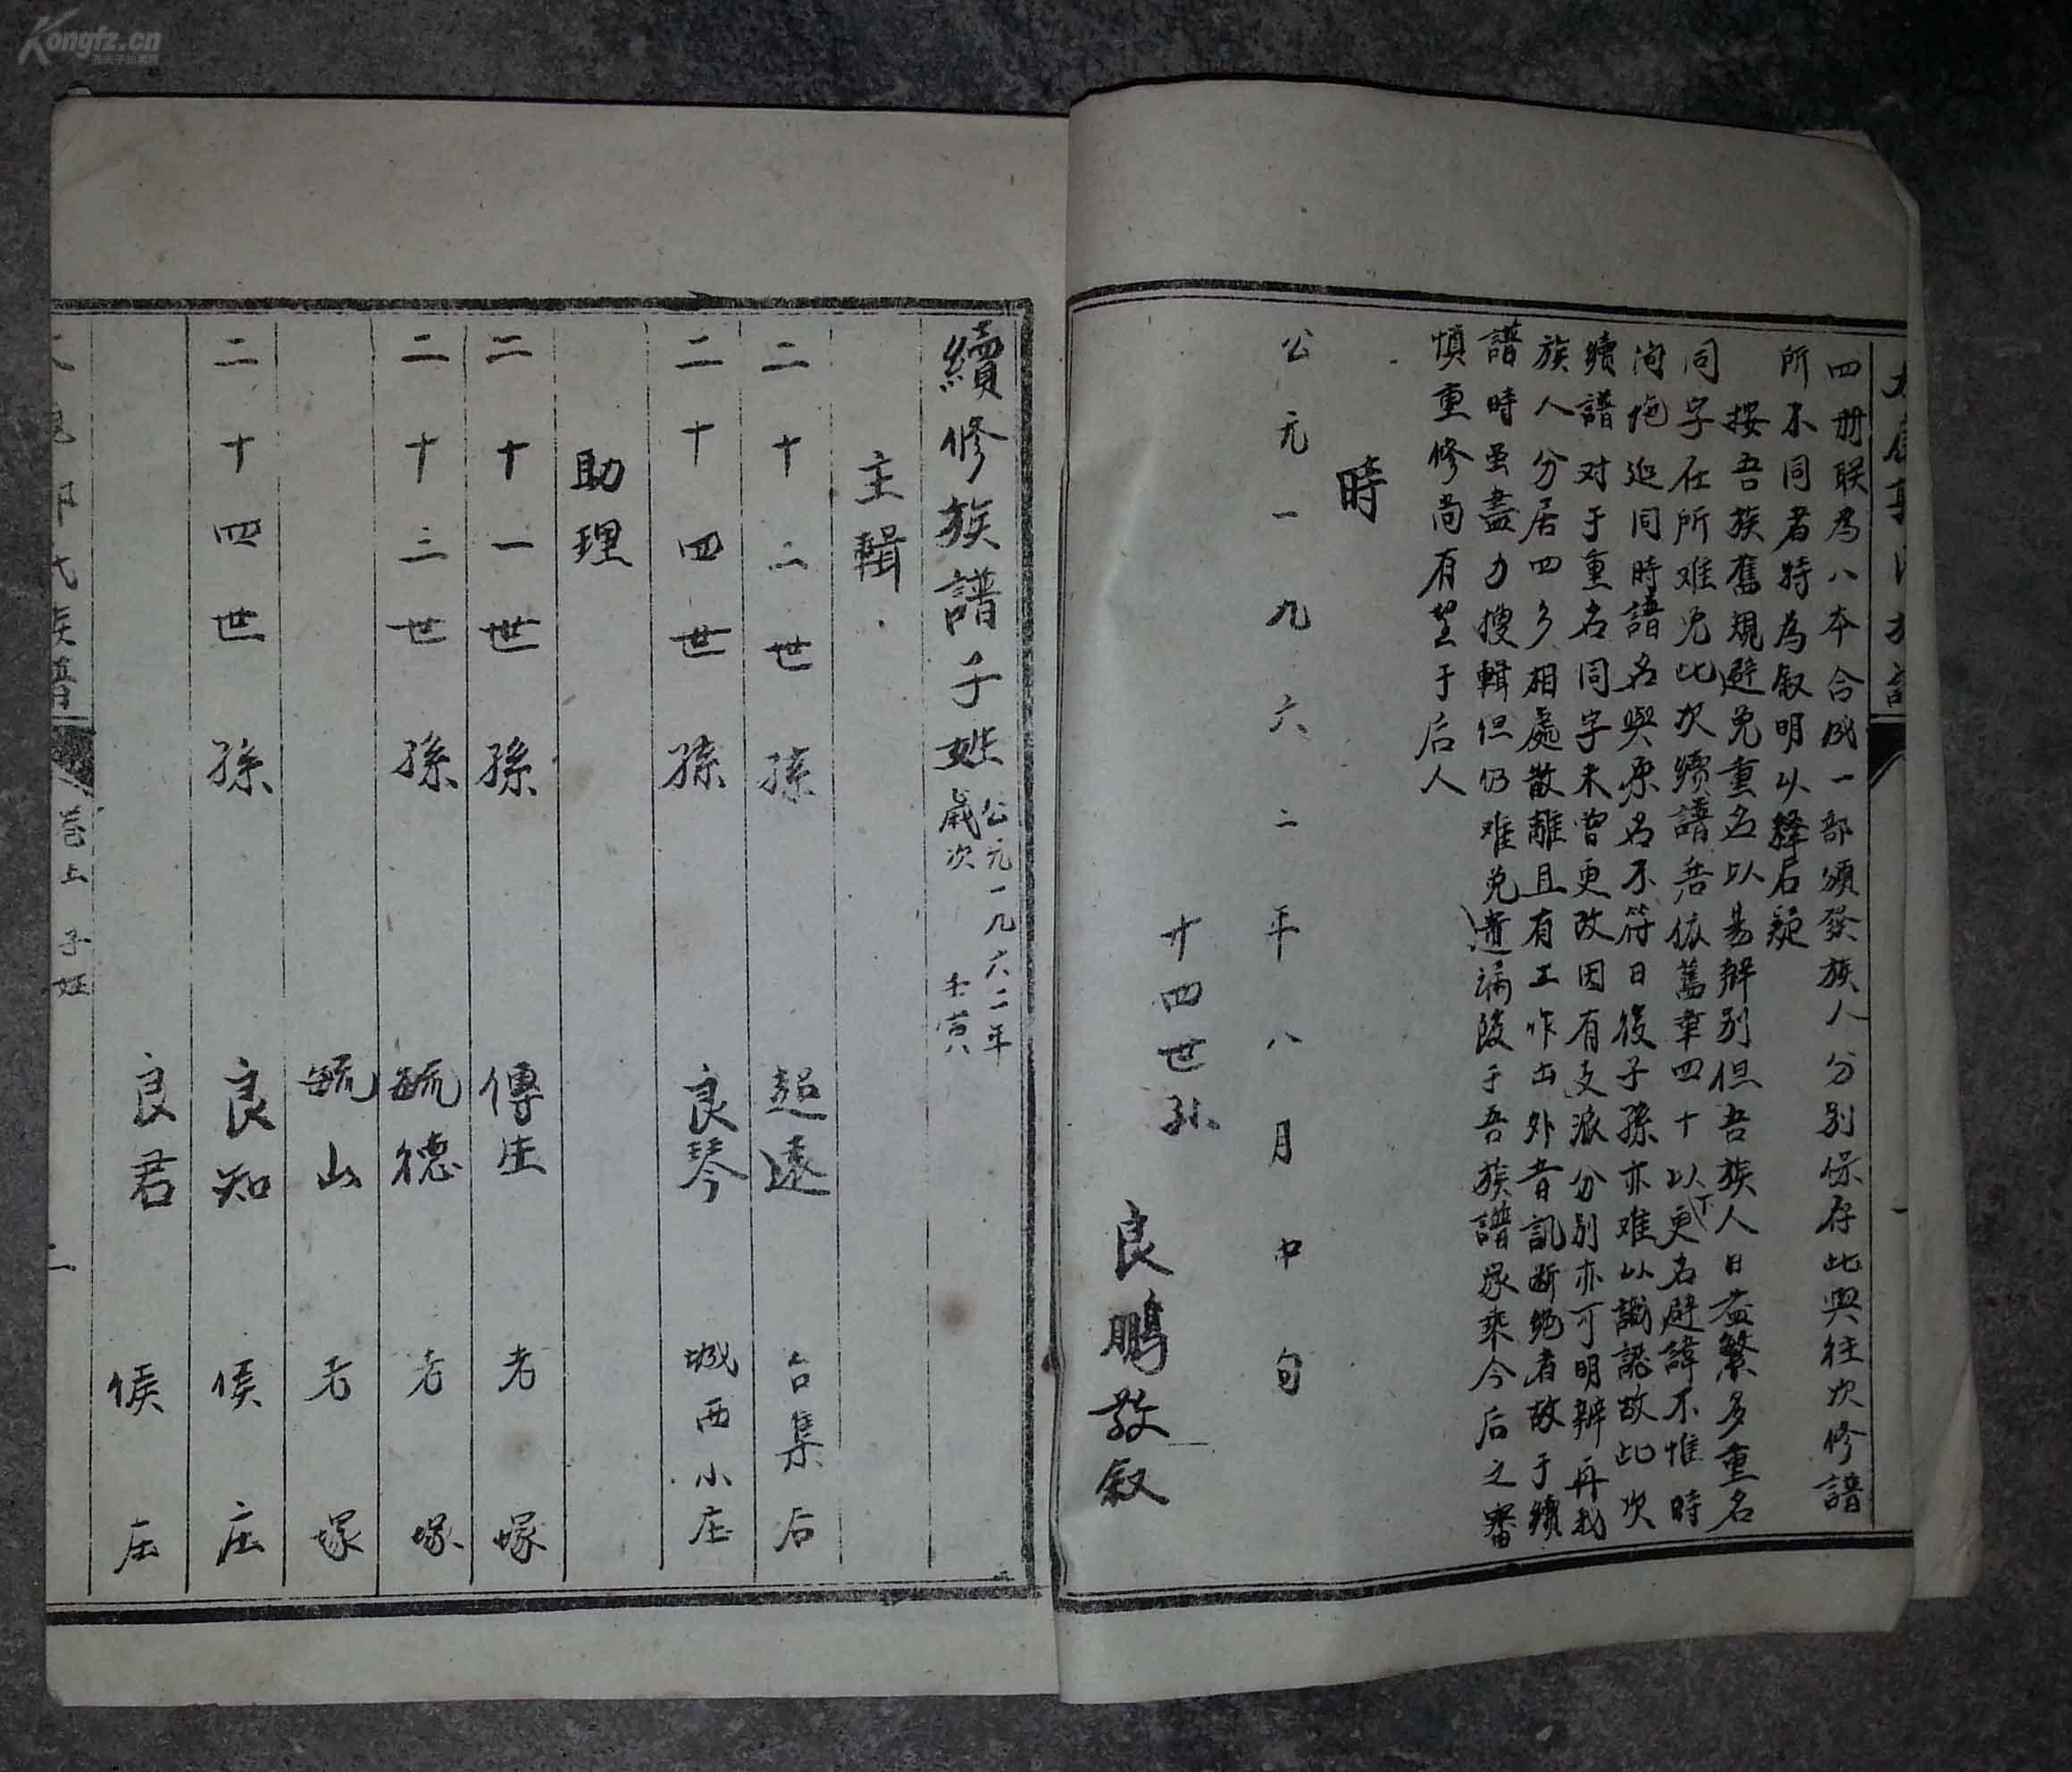 Kongfz.cn
四册联為八本合成一部頒發族人分别保存此與往次修譜
所不同者特為叙明以释后疑
按吾族舊規避免重名以易辨别但吾族人日益繁多重名
同字在所难免此次續譜若依舊章四十以下更名避諱不惟時
间拖延同時譜名與原名不符日後子孫亦难以識認故此次
續譜对于重名同字未曾更改因有支派分别亦可明辨再我
族人分居四乡相處散離且有工作出外音訊断绝者故于續
譜時虽盡力搜輯但仍难免遺漏于吾族譜家乘今后之審
慎重修尚有望于后人
時
公元一九六二年八月中旬
廿四世孙 良鵬敬叙
續修族譜子姓 公元一九六二年 歲次壬寅八
主輯
二十二世孫 超遠 台集后
二十四世孫 良琴 城西小庄
助理
二十一世孫 傳生 老塚
二十三世孫 毓德 老塚
毓山 老塚
二十四世孫 良知 侯庄
良君 侯庄
氏族譜 卷上 子姓 二